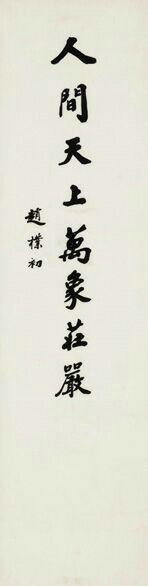 人間天上萬象莊嚴
趙樸初